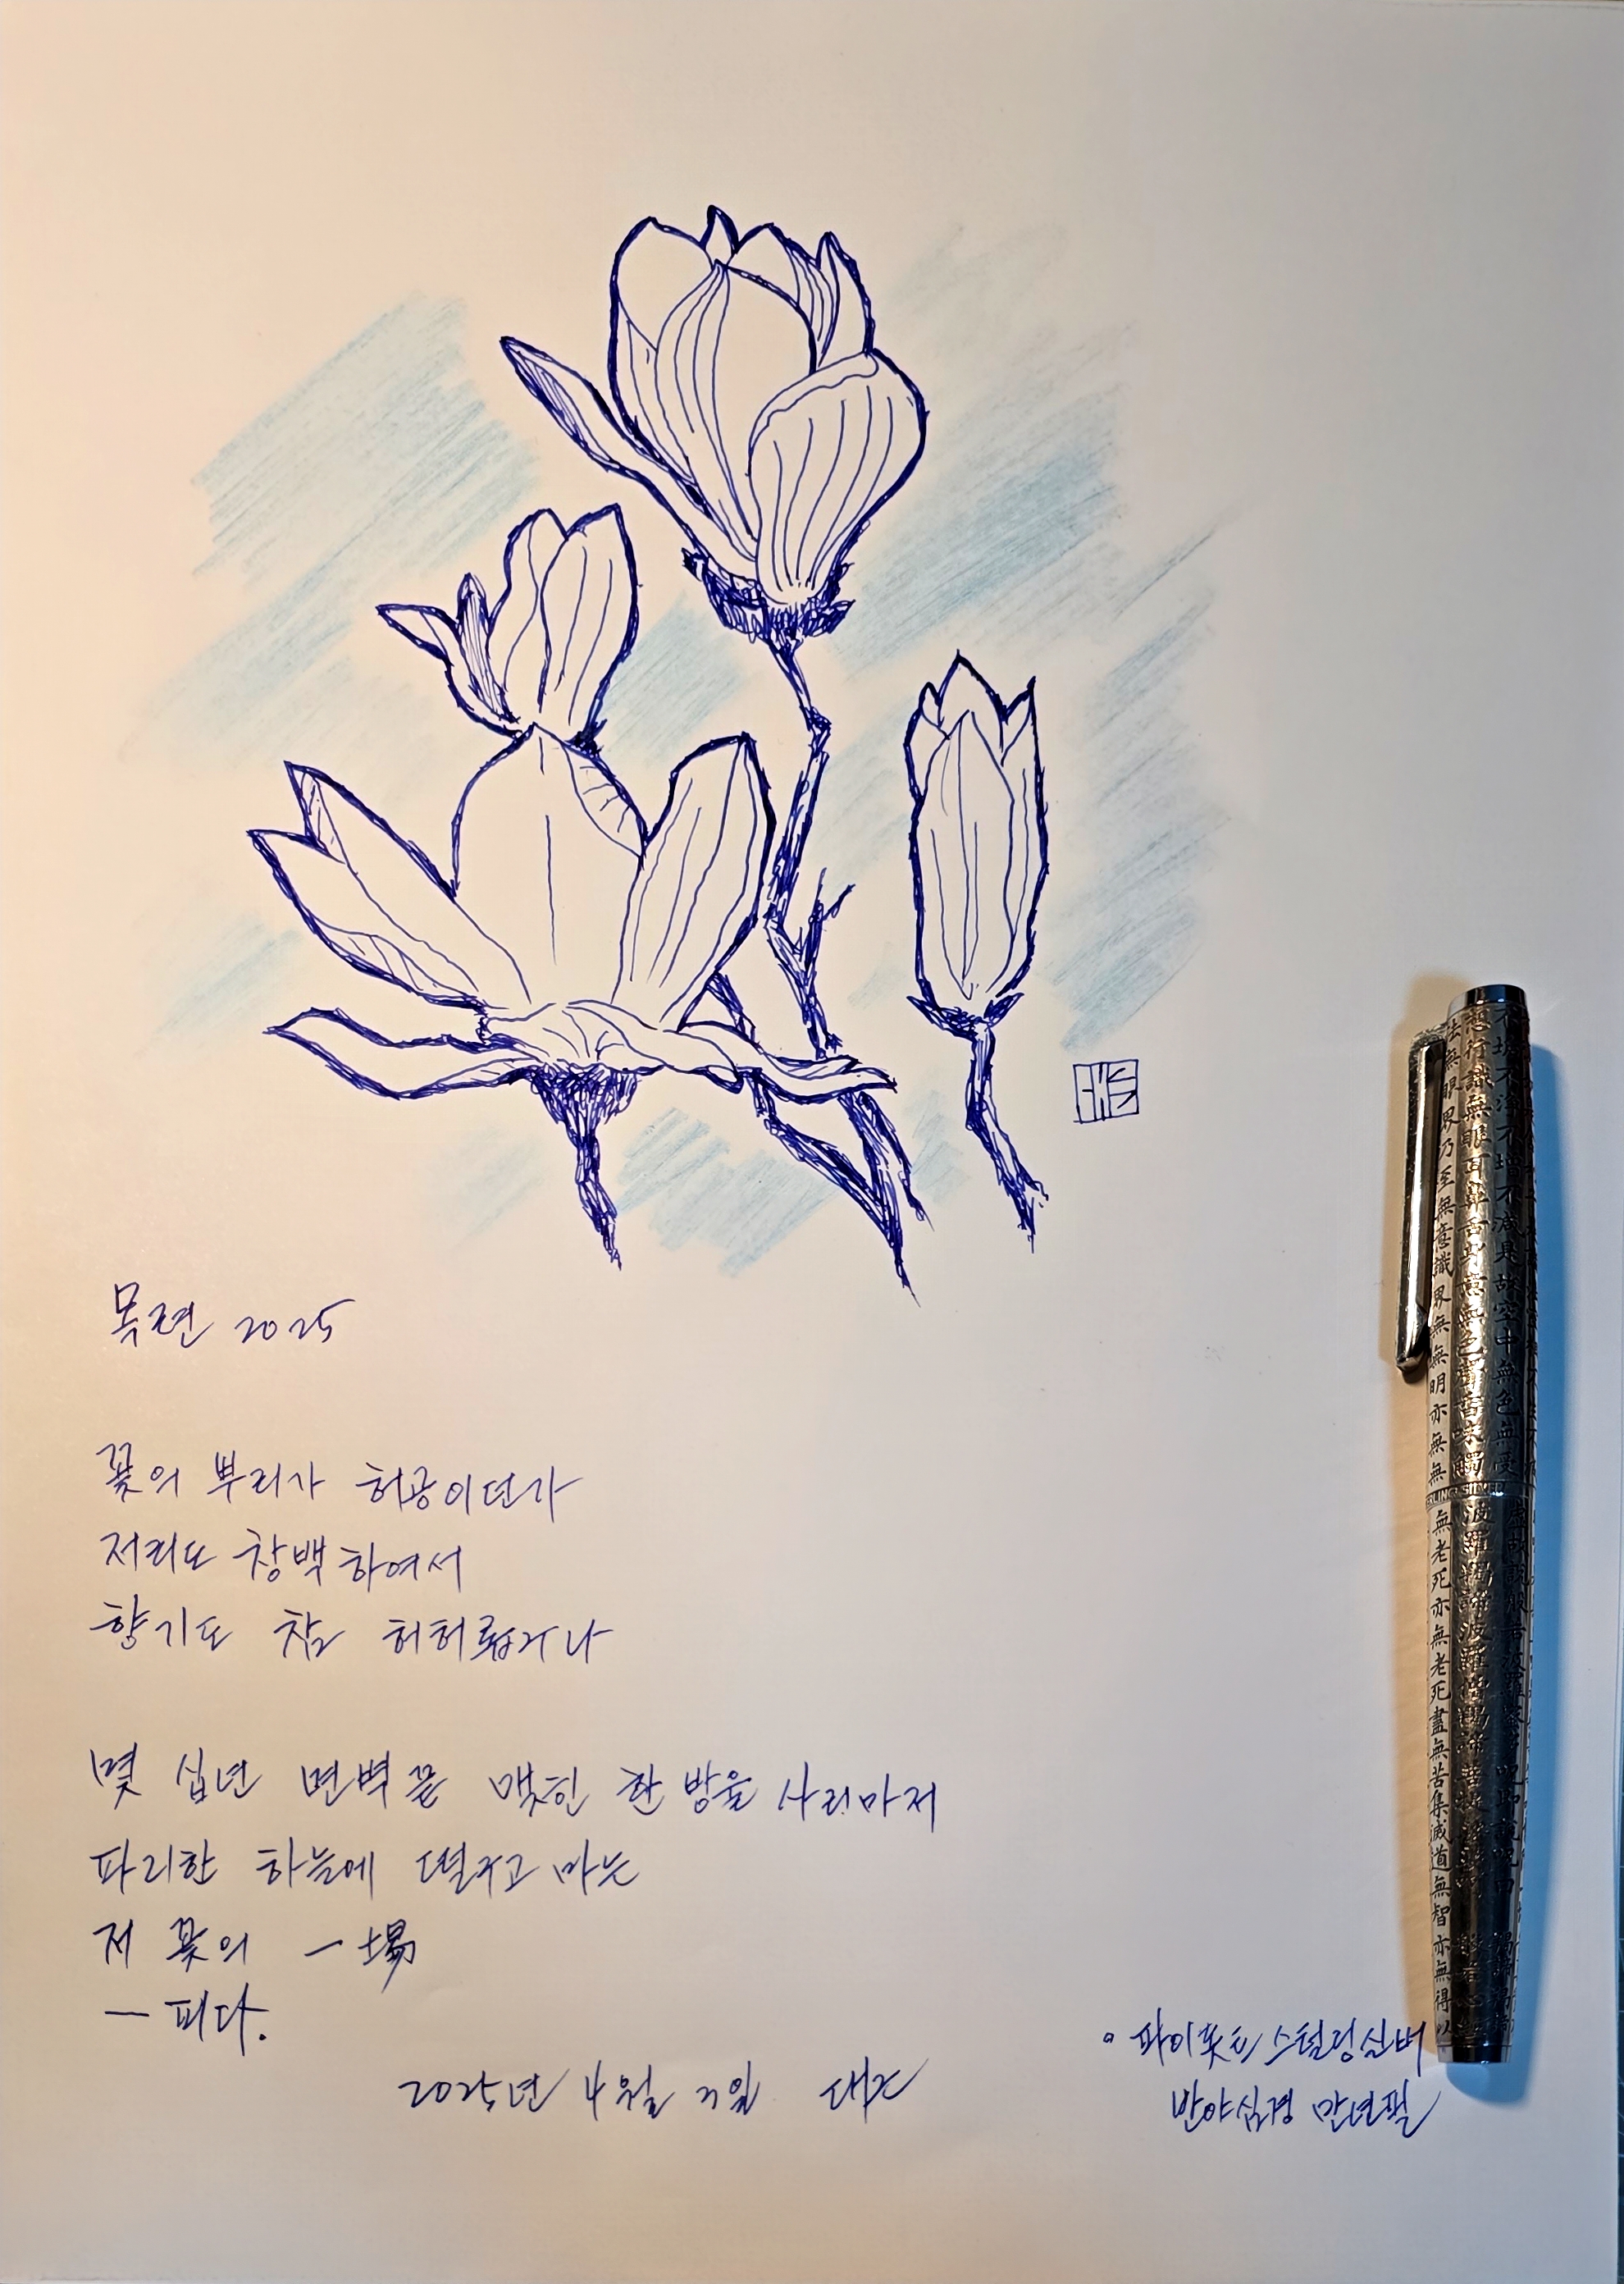 목련 2025
꽃의 뿌리가 허공이던가
저리도 창백하여서
향기도 참 허허롭거니
몇 십년 면벽 끝 맺힌 한 방울 사리마저
파리한 하늘에 떨구고 마는
저 꽃의 一場
一 피다.
2025년 4월 3일
• 파이롯트 스털링실버
반야심경 만년필
法無眼界乃至無意識界無無明亦無無
無老死亦無老死盡無苦集滅道無智亦無得以
想行識無眼耳鼻舌身意無色聲香味觸
不垢不淨不增不減是故空中無色無受